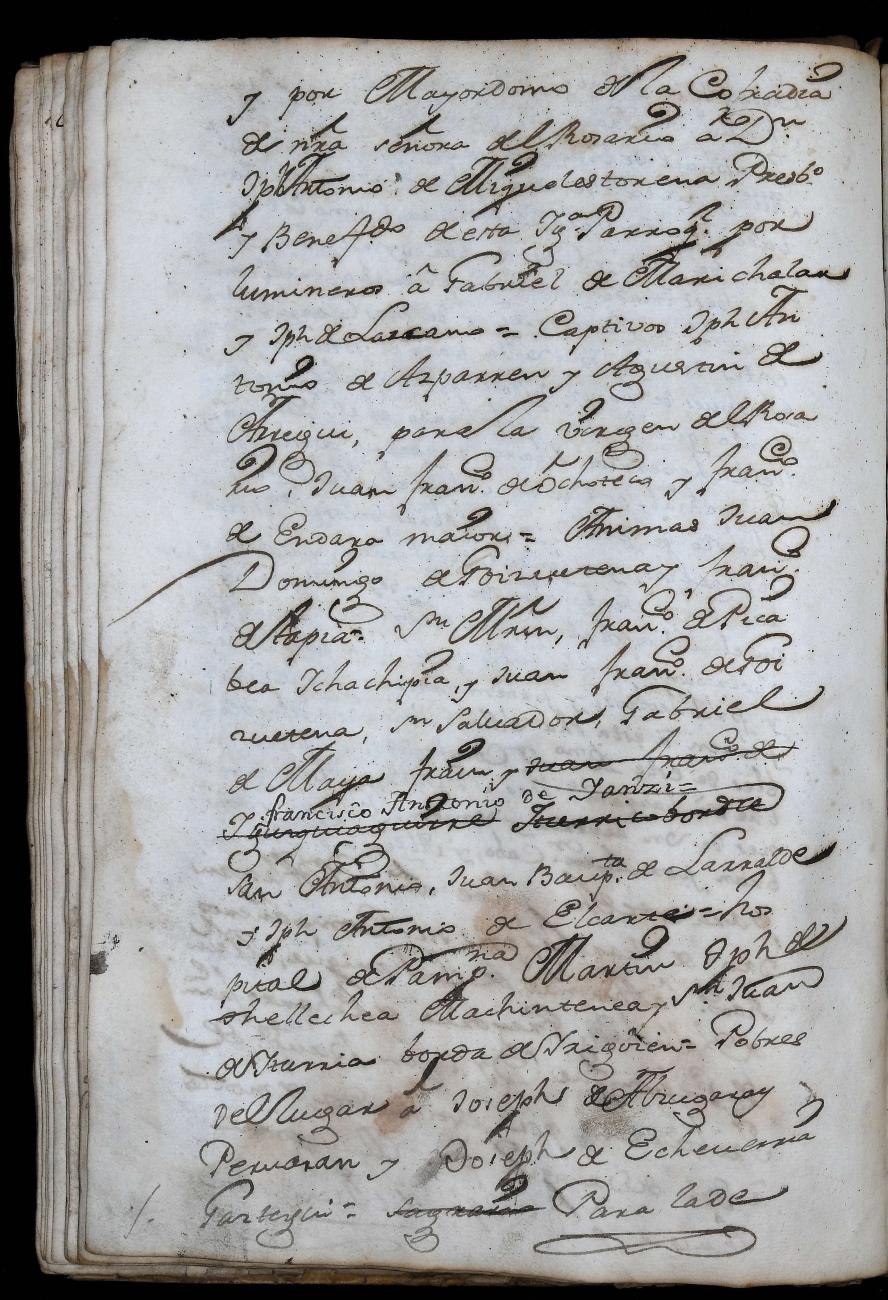 y por Mayordomo de la Cofradia
de nra señora del Rosario a Dn
Jph Antonio de Miguelestorena Presbo
y Benefdo de esta Yga Parroql. por
lumineros â Gabriel de Marichalar
y Jph de Lascano = Captivos Jph An
tonio de Azparren y Agustin de
Arregui, para la Virgen del Rosa
rio, Juan franco. de Ochoteco y franco.
de Endara maior = Animas Juan
Domingo de Goizuetena y franco.
de Tapia = Sn Mrin, franco. de Pica
bea Ychachipia, y Juan franco. de Goi
zuetena, Sn Salvador, Gabriel
de Maya y Juan franco. de
francisco Antonio de Yanzi =
Yturricoborda
San Antonio, Juan Baupta. de Larralde
y Jph Antonio de Elcarte = hos
pital de Pampna. Martin Jph de
thellechea Machintenea y Juan
de Yturria borda de Yrigoien = Pobres
del lugar â Joseph de Abugaray
Perusaran y Joseph de Echeverria
Gaztegui = sagrario Para la de